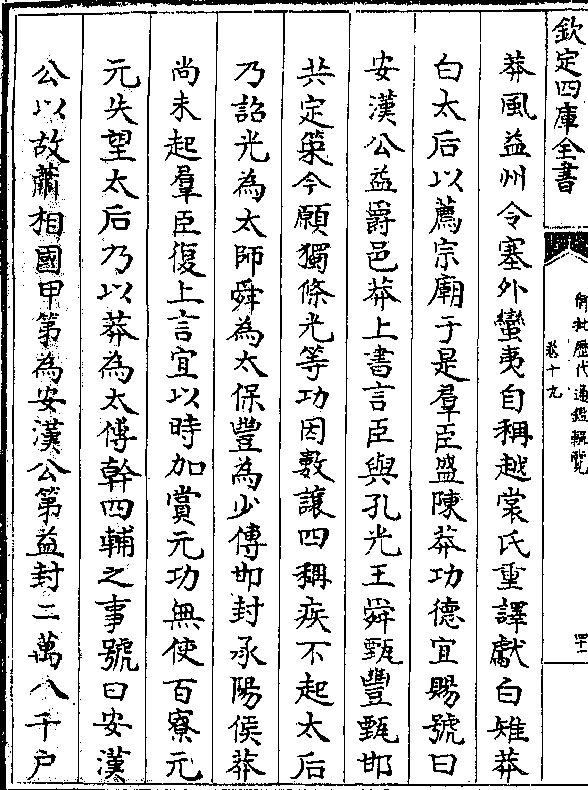 欽定四庫全書
御批歷代通鑑輯覽
卷十九
四十一
莽風益州令塞外蠻夷自稱越裳氏重譯獻白雉莽
白太后以薦宗廟于是羣臣盛陳莽功德宜賜號曰
安漢公益爵邑莽上書言臣與孔光王舜甄豐甄邯
共定策今願獨條光等功因數讓四稱疾不起太后
乃詔光為太師舜為太保豐為少傅邯封承陽侯莽
尚未起羣臣復上言宜以時加賞元功無使百寮元
元失望太后乃以莽為太傅幹四輔之事號曰安漢
公以故蕭相國甲第為安漢公第益封二萬八千户